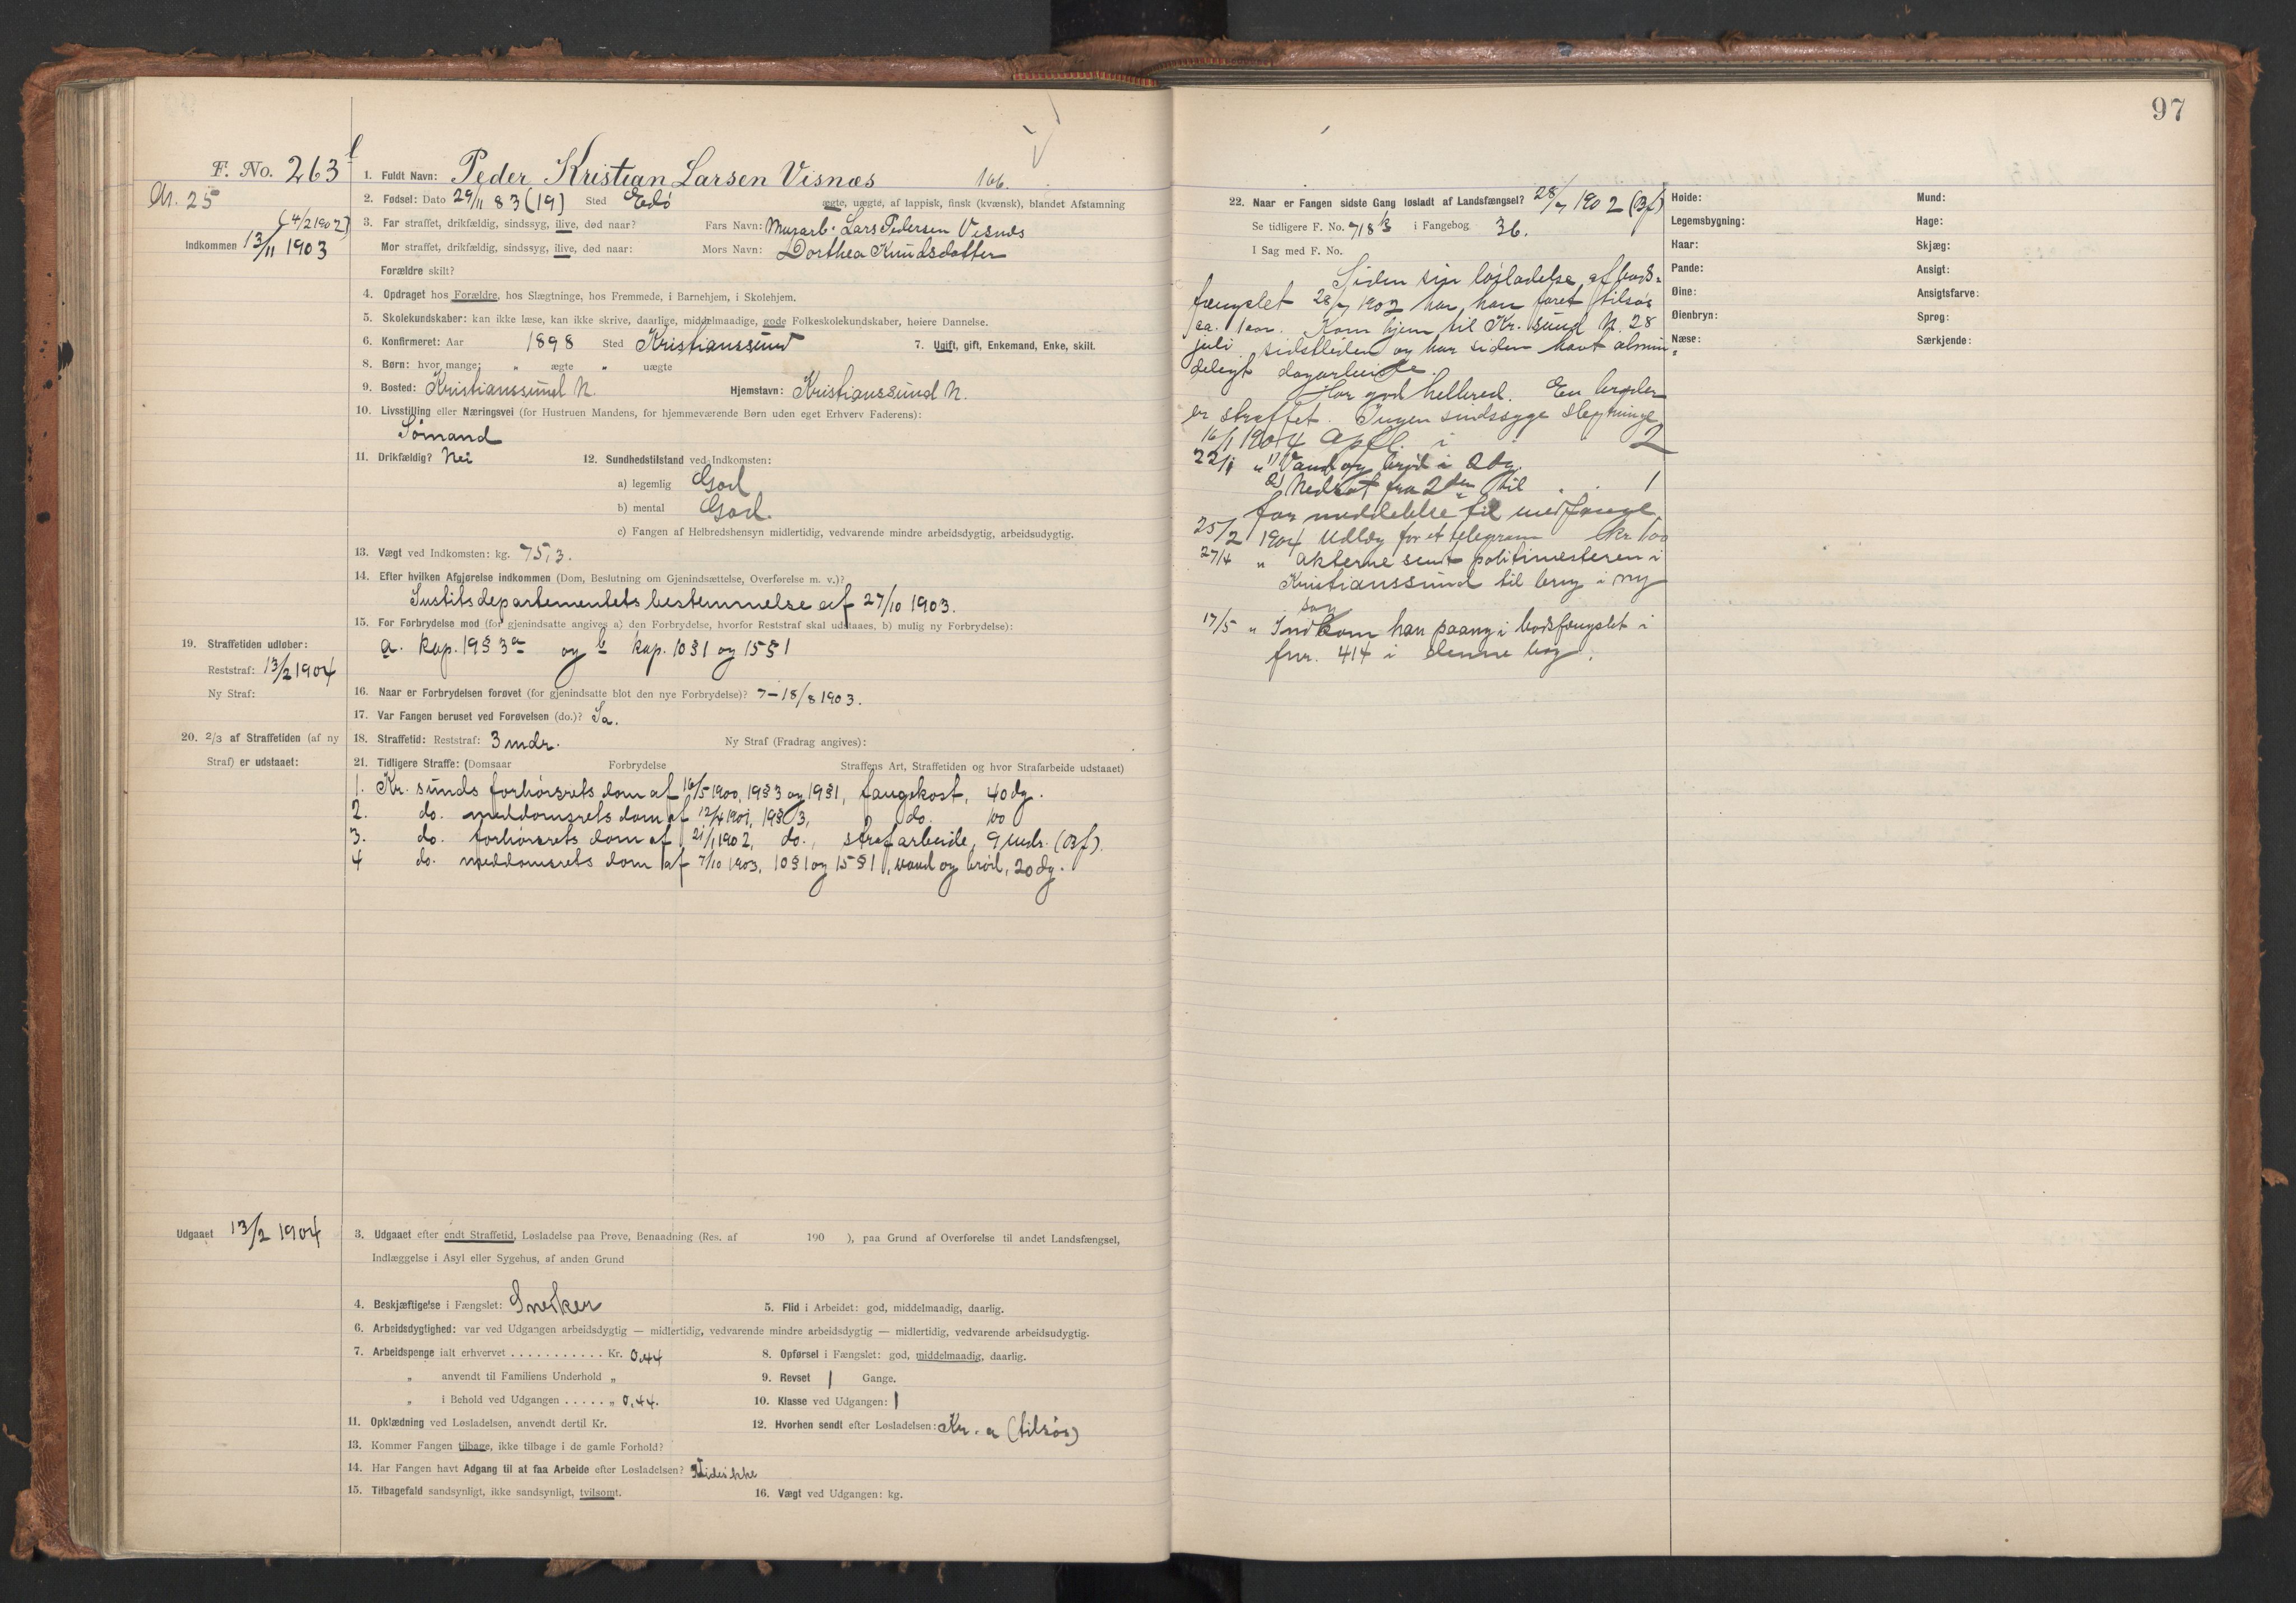 F. No. 263 l
M. 25
(4/2 1902)
Indkommen 13/11 1903
1. Fuldt Navn: Peder Kristian Larsen Visnæs 166.
2. Fødsel: Dato 29/11 83 (19) Sted Edö ægte, uægte, af lappisk, finsk (kvænsk), blandet Afstamning
3. Far straffet, drikfældig, sindssyg, ilive, død naar? Fars Navn: Murarb. Lars Pedersen Visnes
Mor straffet, drikfældig, sindssyg, ilive, død naar: Mors Navn: Dorthea Knudsdatter
Forældre skilt?
4. Opdraget hos Forældre, hos Slægtninge, hos Fremmede, i Barnehjem, i Skolehjem.
5. Skolekundskaber: kan ikke læse, kan ikke skrive, daarlige, middelmaadige, gode Folkeskolekundskaber, høiere Dannelse.
6. Konfirmeret: Aar 1898 Sted Kristianssund 7. Ugift, gift, Enkemand, Enke, skilt.
8. Børn: hvor mange: " ægte " uægte
9. Bosted: Kristianssund N. Hjemstavn: Kristianssund N.
10. Livsstilling eller Næringsvei (for Hustruen Mandens, for hjemmeværende Børn uden eget Erhverv Faderens):
Sömand
11. Drikfældig? Nei 12. Sundhedstilstand ved Indkomsten:
a) legemlig God
b) mental God.
c) Fangen af Helbredshensyn midlertidig, vedvarende mindre arbeidsdygtig, arbeidsudygtig.
13. Vægt ved Indkomsten: kg. 75,3.
14. Efter hvilken Afgjørelse indkommen (Dom, Beslutning om Gjenindsættelse, Overførelse m. v.)?
Justitsdepartementets bestemmelse af 27/10 1903.
15. For Forbrydelse mod (for gjenindsatte angives a) den Forbrydelse, hvorfor Reststraf skal udstaaes, b) mulig ny Forbrydelse):
a. kap. 19 § 3 a og b kap. 10 § 1 og 15 § 1
19. Straffetiden udløber:
Reststraf: 13/2 1904
Ny Straf:
16. Naar er Forbrydelsen forøvet (for gjenindsatte blot den nye Forbrydelse)? 7–18/8 1903.
17. Var Fangen beruset ved Forøvelsen (do.)? Ja.
20. 2/3 af Straffetiden (af ny
Straf) er udstaaet:
18. Straffetid: Reststraf: 3 mdr. Ny Straf (Fradrag angives):
21. Tidligere Straffe: (Domsaar Forbrydelse Straffens Art, Straffetiden og hvor Strafarbeide udstaaet)
1. Kr. sunds forhörsrets dom af 16/5 1900, 19 § 3 og 19 § 1, fangekost, 40 dg.
2. do. meddomsrets dom af 12/4 1901, 19 § 3, do. 100
3. do. forhörsrets dom af 21/1 1902, do., strafarbeide, 9 mdr. (Bf).
4 do. meddomsrets dom af 7/10 1903, 10 § 1 og 15 § 1, vand og bröd, 20 dg.
Udgaaet 13/2 1904
3. Udgaaet efter endt Straffetid, Løsladelse paa Prøve, Benaadning (Res. af 190 ), paa Grund af Overførelse til andet Landsfængsel,
Indlæggelse i Asyl eller Sygehus, af anden Grund
4. Beskjæftigelse i Fængslet: Snekker 5. Flid i Arbeidet: god, middelmaadig, daarlig.
6. Arbeidsdygtighed: var ved Udgangen arbeidsdygtig — midlertidig, vedvarende mindre arbeidsdygtig — midlertidig, vedvarende arbeidsudygtig.
7. Arbeidspenge ialt erhvervet ........... Kr. 0,44 8. Opførsel i Fængslet: god, middelmaadig, daarlig.
" anvendt til Familiens Underhold " 9. Revset 1 Gange.
" i Behold ved Udgangen ..... " 0,44. 10. Klasse ved Udgangen: 1
11. Opklædning ved Løsladelsen, anvendt dertil Kr. 12. Hvorhen sendt efter Løsladelsen: Kr. a (tilsös)
13. Kommer Fangen tilbage, ikke tilbage i de gamle Forhold?
14. Har Fangen havt Adgang til at faa Arbeide efter Løsladelsen? Vides ikke
15. Tilbagefald sandsynligt, ikke sandsynligt, tvilsomt. 16. Vægt ved Udgangen: kg.
97
22. Naar er Fangen sidste Gang løsladt af Landsfængsel? 28/7 1902 (Bf)
Se tidligere F. No. 718 k i Fangebog 36.
I Sag med F. No.
Siden sin lösladelse af bods-
fængslet 28/7 1902 har han faret tilsös
ca. 1 aar. Kom hjem til Kr. sund N. 28
juli sidstleden og har siden havt almin-
deligt dagarbeide.
Har god helbred. En broder
er straffet. Ingen sindssyge slegtninge
16/1 1904 Opfl. i 2
22/1 " 1) Vand og bröd i 2 dg.
2) Nedsat fra 2den til . . 1
for meddelelse til medfange
25/2 1904 Udlæg for et telegram kr 1,00
27/4 " akterne sendt politimesteren i
Kristianssund til brug i ny
sag
17/5 " Indkom han paany i bodsfængslet i
fnr. 414 i denne bog.
Høide: Mund:
Legemsbygning: Hage:
Haar: Skjæg:
Pande: Ansigt:
Øine: Ansigtsfarve:
Øienbryn: Sprog:
Næse: Særkjende: